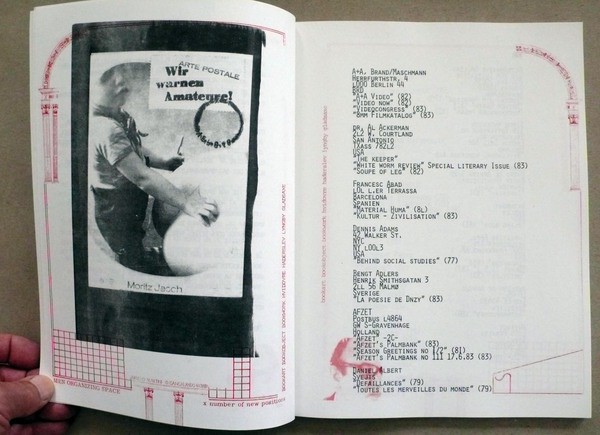 ARTE POSTALE
Wir
warnen
Amateure!
Moritz Jasch
ORGANIZING SPACE
a number of new positions
A+A, BRAND/MASCHMANN
HERRFURTHSTR. 4
LOOO BERLIN 44
BRD
"A+A VIDEO" (82)
"VIDEO NOW" (82)
"VIDEOCONGRESS" (83)
"8MM FILMKATALOG" (83)
DR. AL ACKERMAN
2L2 W. COURTLAND
SAN ANTONIO
TXASS 782L2
USA
"THE KEEPER"
"WHITE WORM REVIEW" SPECIAL LITERARY ISSUE (83)
"SOUPE OF LEG" (82)
FRANCESC ABAD
LOL L.ER TERRASSA
BARCELONA
SPANIEN
"MATERIAL HUMA" (8L)
"KULTUR - ZIVILISATION" (83)
DENNIS ADAMS
42 WALKER ST.
NYC
NY LOOL3
USA
"BEHIND SOCIAL STUDIES" (77)
BENGT ADLERS
HENRIK SMITHSGATAN 3
2LL 56 MALMØ
SVERIGE
"LA POESIE DE DNZY" (83)
AFZET
POSTBUS L4864
GW S-GRAVENHAGE
HOLLAND
"AFZET" -2C-
"AFZET'S PALMBANK" (83)
"SEASON GREETINGS NO 1/2" (81)
"AFZET'S PALMBANK NO 111 17.6.83 (83)
DANIEL ALBERT
SVEJTS
"DEFAILLANCES" (79)
"TOUTES LES MERVEILLES DU MONDE" (79)